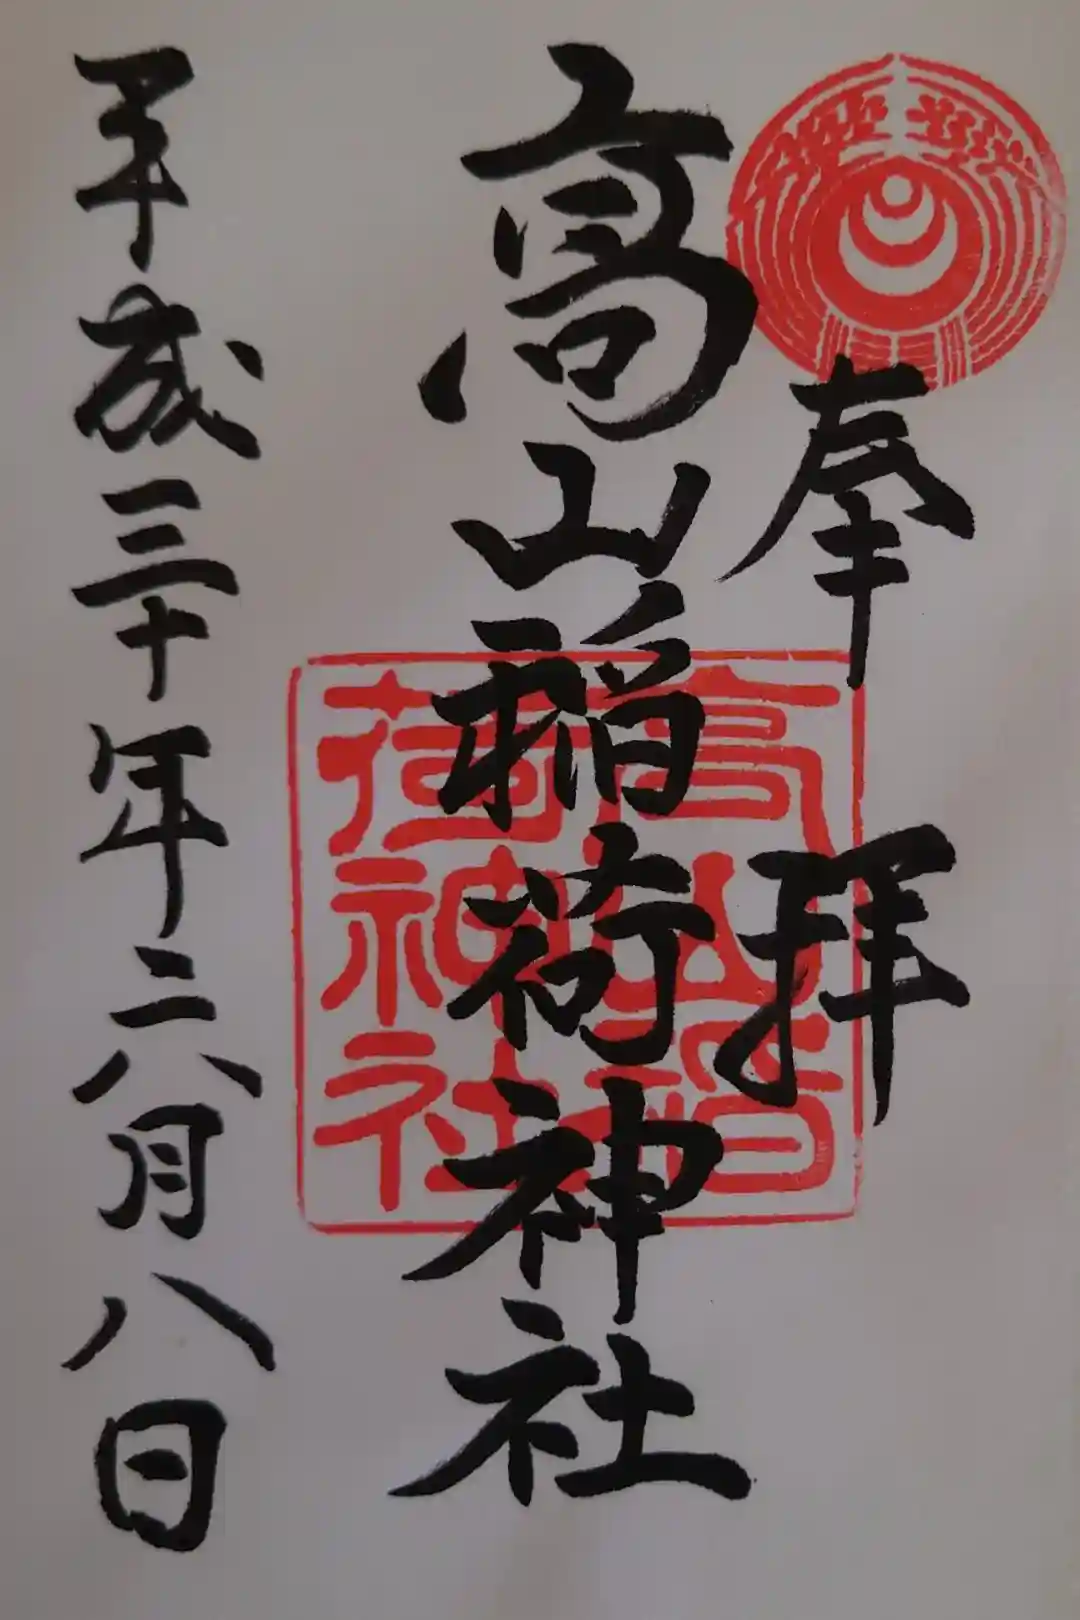 奉拝
高山稲荷神社
高山稲
荷神社
平成三十年六月八日